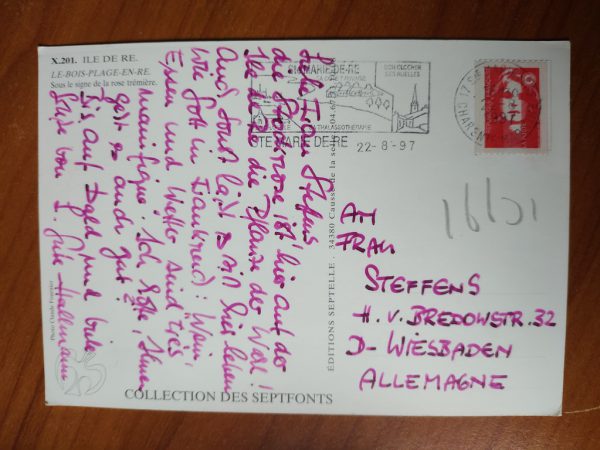 X.201. ILE DE RE.
LE-BOIS-PLAGE-EN-RE.
Sous le signe de la rose trémière.
STE MARIE-DE-RE
SON CLOCHER
SES RUELLES
THALASSOTHERAPIE
STE MARIE DE RE
22-8-97
Liebe Frau Steffens,
die Stockrose ist hier auf der
Ile de Ré die Pflanze der Wahl!
Auch sonst läßt es sich hier leben
wie Gott in Frankreich: Wein,
Essen und Wetter sind très
magnifique. Ich hoffe, Ihnen
geht es auch gut!
Bis auf bald und liebe
Grüße von
Photo Claude
EDITIONS SEPTELLE . 34380 Causse de la selle
COLLECTION DES SEPTFONTS
AN
FRAU
STEFFENS
H. v. BREDOWSTR. 32
D- WIESBADEN
ALLEMAGNE